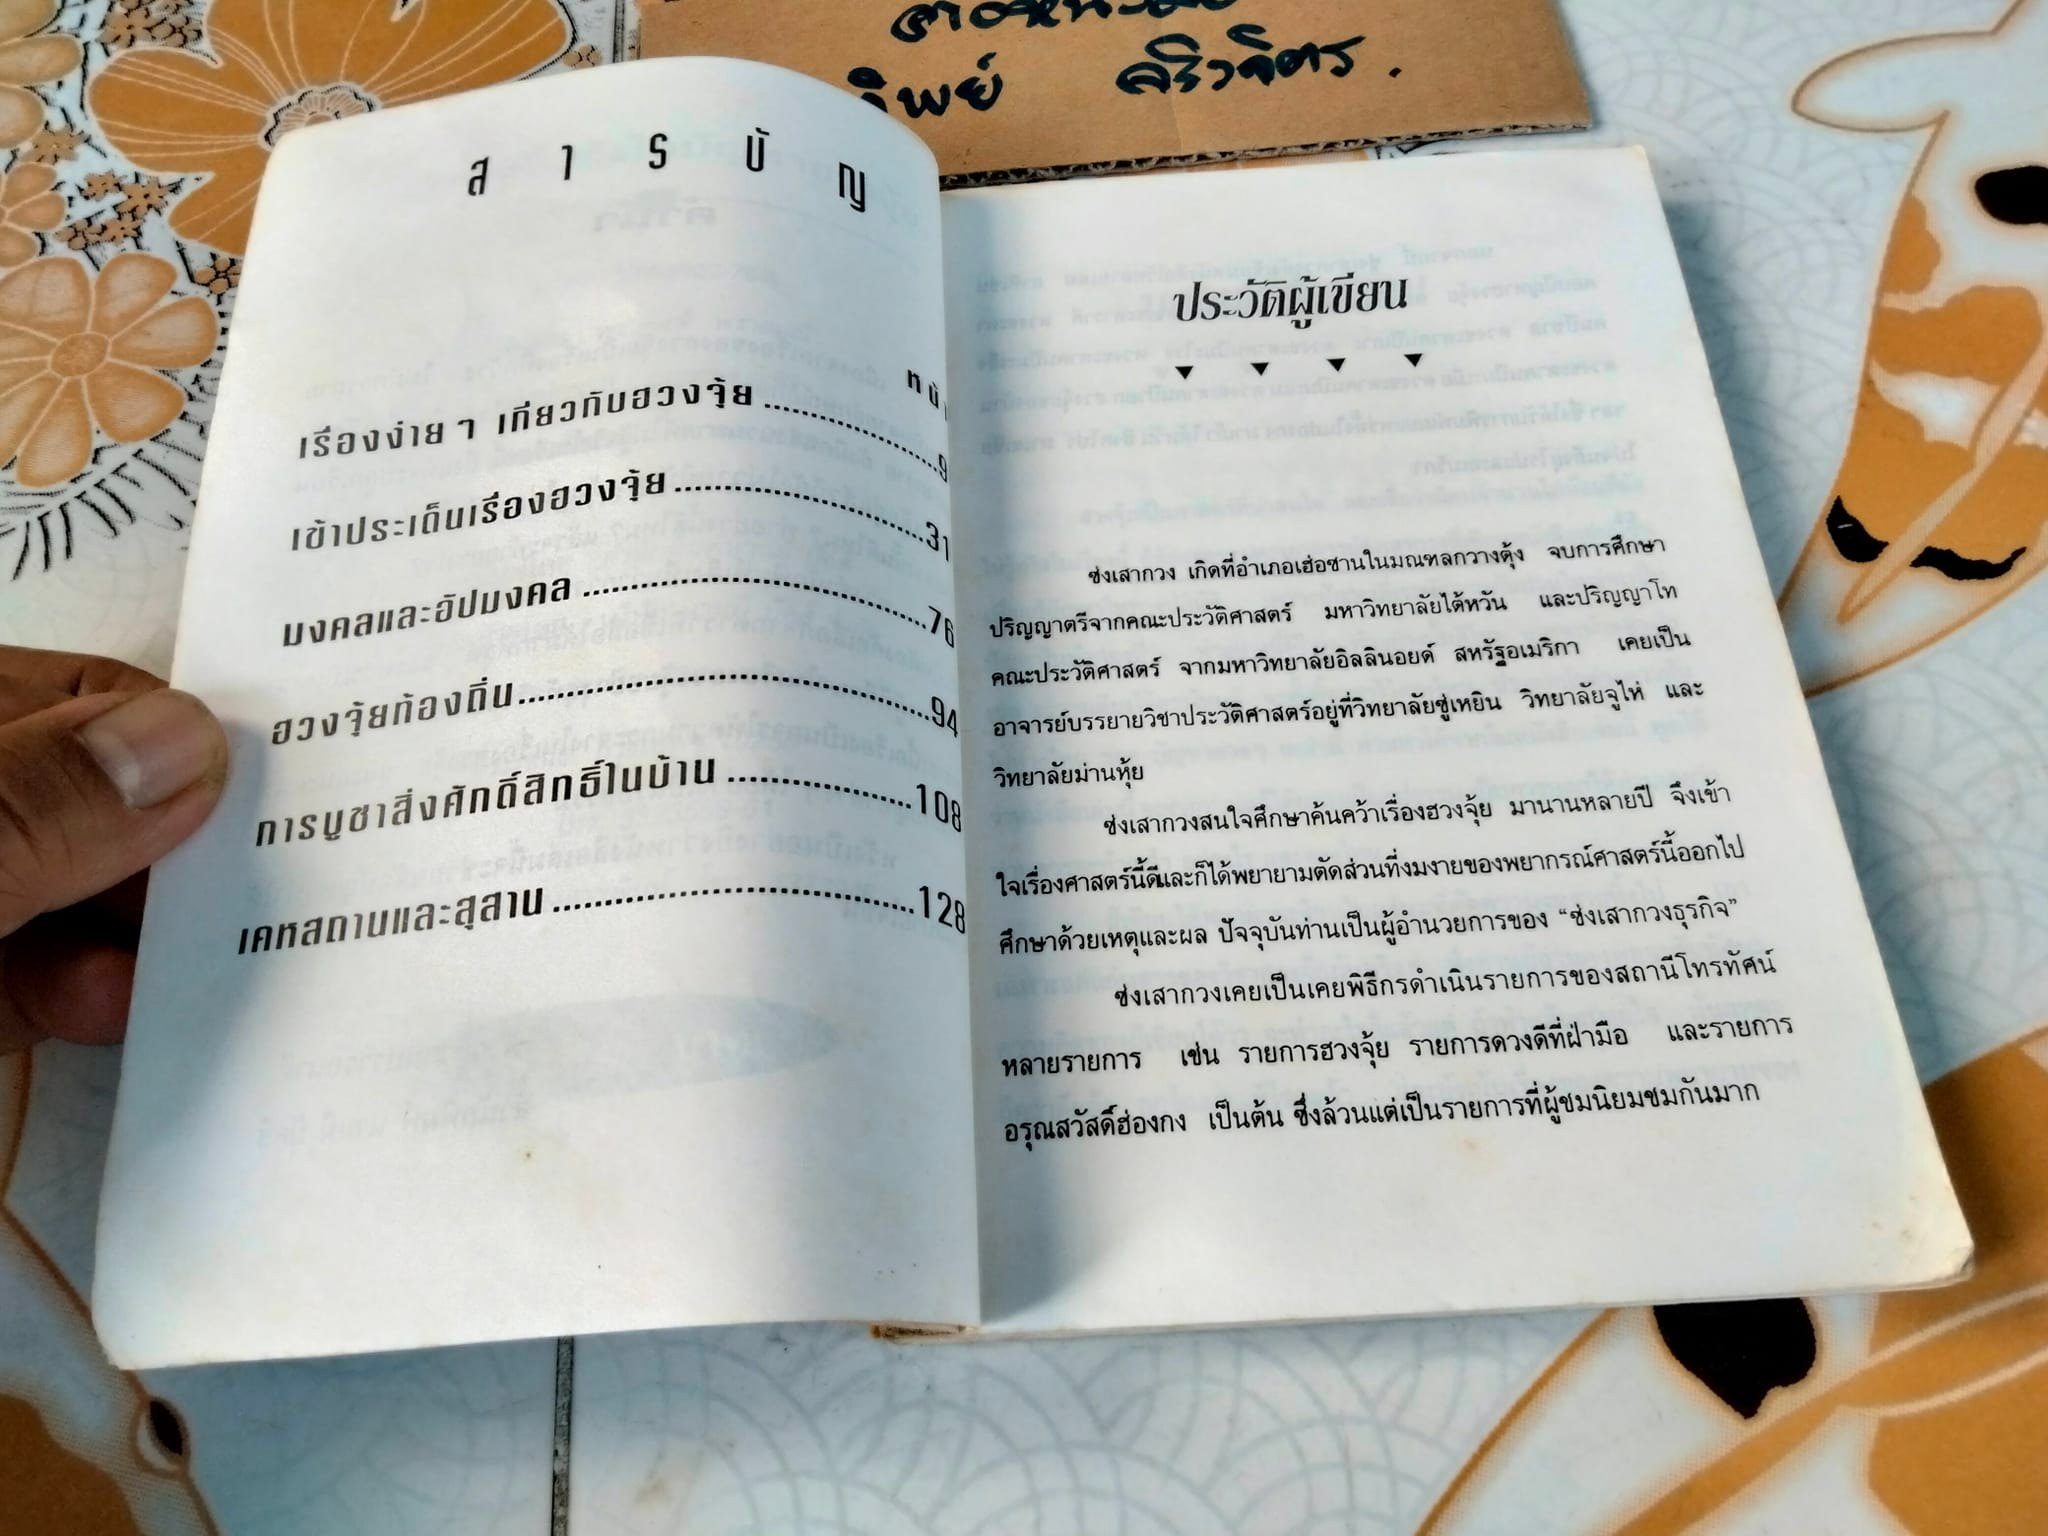 ทิพย์ ศริวจิตร.
สารบัญ
หน้า
เรื่องง่าย ๆ เกี่ยวกับฮวงจุ้ย..........9
เข้าประเด็นเรื่องฮวงจุ้ย..........31
มงคลและอัปมงคล..........76
ฮวงจุ้ยท้องถิ่น..........94
การบูชาสิ่งศักดิ์สิทธิ์ในบ้าน..........108
เคหสถานและสุสาน..........128
ประวัติผู้เขียน
ซ่งเสากวง เกิดที่อำเภอเฮ่อซานในมณฑลกวางตุ้ง จบการศึกษา
ปริญญาตรีจากคณะประวัติศาสตร์ มหาวิทยาลัยไต้หวัน และปริญญาโท
คณะประวัติศาสตร์ จากมหาวิทยาลัยอิลลินอยด์ สหรัฐอเมริกา เคยเป็น
อาจารย์บรรยายวิชาประวัติศาสตร์อยู่ที่วิทยาลัยซู่เหยิน วิทยาลัยจูไห่ และ
วิทยาลัยม่านหุ้ย
ซ่งเสากวงสนใจศึกษาค้นคว้าเรื่องฮวงจุ้ย มานานหลายปี จึงเข้า
ใจเรื่องศาสตร์นี้ดีและก็ได้พยายามตัดส่วนที่งมงายของพยากรณ์ศาสตร์นี้ออกไป
ศึกษาด้วยเหตุและผล ปัจจุบันท่านเป็นผู้อำนวยการของ “ซ่งเสากวงธุรกิจ”
ซ่งเสากวงเคยเป็นเคยพิธีกรดำเนินรายการของสถานีโทรทัศน์
หลายรายการ เช่น รายการฮวงจุ้ย รายการดวงดีที่ฝ่ามือ และรายการ
อรุณสวัสดิ์ฮ่องกง เป็นต้น ซึ่งล้วนแต่เป็นรายการที่ผู้ชมนิยมชมกันมาก